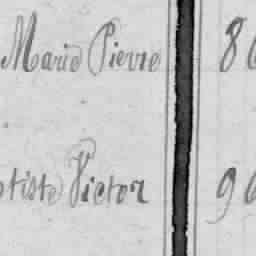 Marie Pierre 86
tiste Victor 96